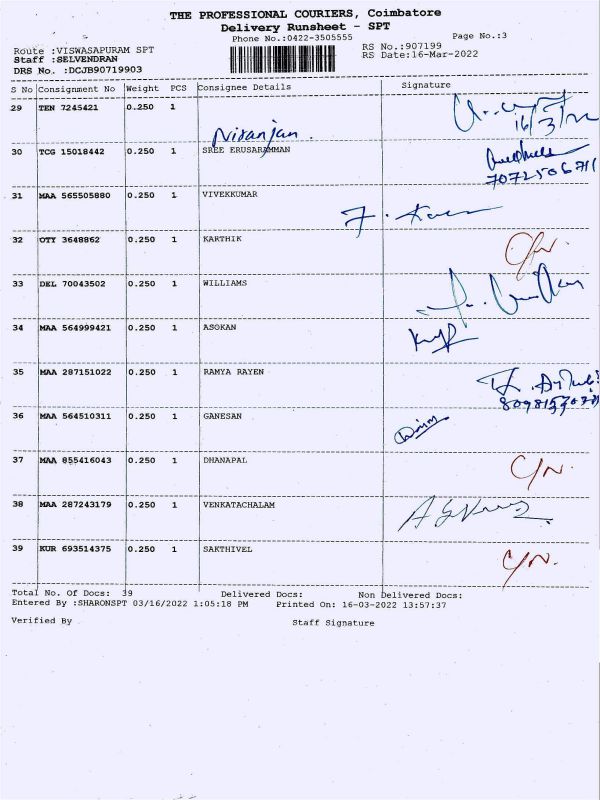 THE PROFESSIONAL COURIERS, Coimbatore
Delivery Runsheet - SPT
Phone No.:0422-3505555
Page No.:3
Route :VISWASAPURAM SPT
RS No.:907199
Staff :SELVENDRAN
RS Date:16-Mar-2022
DRS No. :DCJB90719903
S No Consignment No Weight PCS Consignee Details Signature
29 TEN 7245421 0.250 1
16/3/22
Niranjan.
30 TCG 15018442 0.250 1 SREE ERUSARAMMAN
7072506711
31 MAA 565505880 0.250 1 VIVEKKUMAR
32 OTY 3648862 0.250 1 KARTHIK
C/N.
33 DEL 70043502 0.250 1 WILLIAMS
34 MAA 564999421 0.250 1 ASOKAN
35 MAA 287151022 0.250 1 RAMYA RAYEN
36 MAA 564510311 0.250 1 GANESAN
37 MAA 855416043 0.250 1 DHANAPAL
C/N.
38 MAA 287243179 0.250 1 VENKATACHALAM
39 KUR 693514375 0.250 1 SAKTHIVEL
C/N.
Total No. Of Docs: 39 Delivered Docs: Non Delivered Docs:
Entered By :SHARONSPT 03/16/2022 1:05:18 PM Printed On: 16-03-2022 13:57:37
Verified By Staff Signature